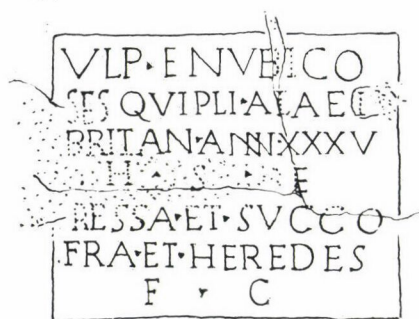 VLP·ENVEICO
SES QVIPLI·ALAE CI
BRITAN·ANN·XXXV
H · S · E
RESSA·ET·SVCCO
FRA·ET·HEREDES
F · C